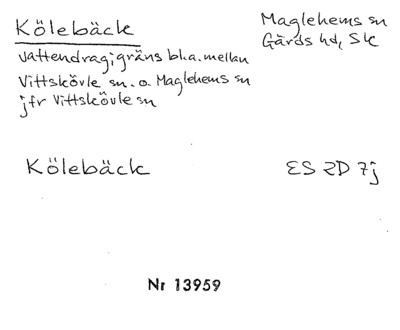 Kölebäck
Maglehems sn
Gärds hd, Sk
vattendrag i gräns bl.a. mellan
Vittskövle sn. o. Maglehems sn
jfr Vittskövle sn
Kölebäck
ES 2D 7j
Nr 13959